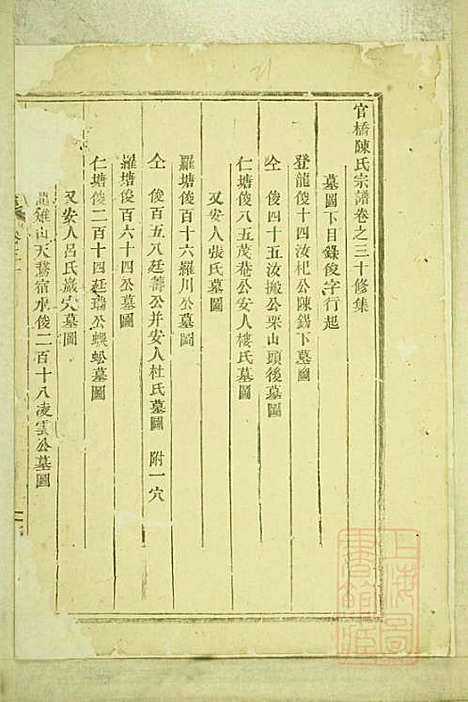 官橋陳氏宗譜卷之三十修集
墓圖下目錄俊字行起
登龍俊十四汝杞公陳錫下墓圖
仝 俊四十五汝撖公栗山頭後墓圖
仁塘俊八五茂菴公安人樓氏墓圖
又安人張氏墓圖
羅塘俊百十六羅川公墓圖
仝 俊百五八廷壽公并安人杜氏墓圖 附一穴
羅塘俊百六十四公墓圖
仁塘俊二百十四廷瑞公蜈蚣墓圖
又安人呂氏歲穴墓圖
山天鵞宿水俊二百十八凌雲公墓圖
上海圖書館藏